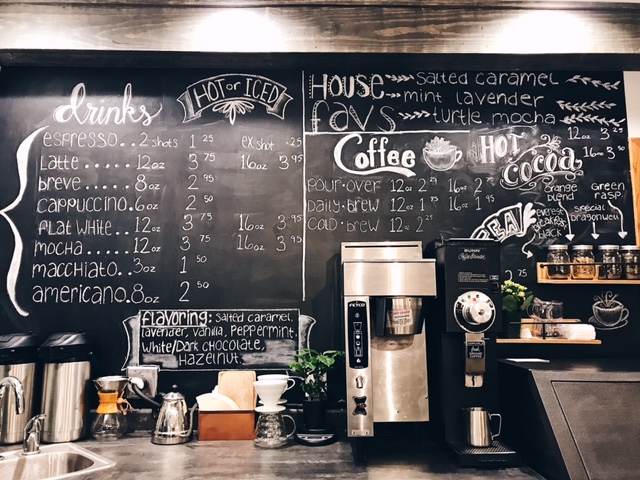 drinks
HOT or ICED
espresso..2 shots 1 25 ex shot .25
Latte.....12oz 3 75 16oz 3 95
breve.....8oz 2 95
cappuccino.6oz 2 50
flat white..12oz 3 75 16oz 3 95
mocha.....12oz 3 75 16oz 3 95
macchiato..3oz 1 50
americano.8oz 2 50
flavoring: salted caramel,
lavender, vanilla, peppermint,
White/Dark chocolate,
Hazelnut
House favs
salted caramel
mint lavender
turtle mocha
Coffee
pour·over 12oz 2 16oz 2
daily·brew 12oz 1 75 16oz 1 95
cold·brew 12oz 2
HOT cocoa
12oz 3 25
16oz 3 50
TEA
orange blend
Green
special dragonwell
black
BUNN